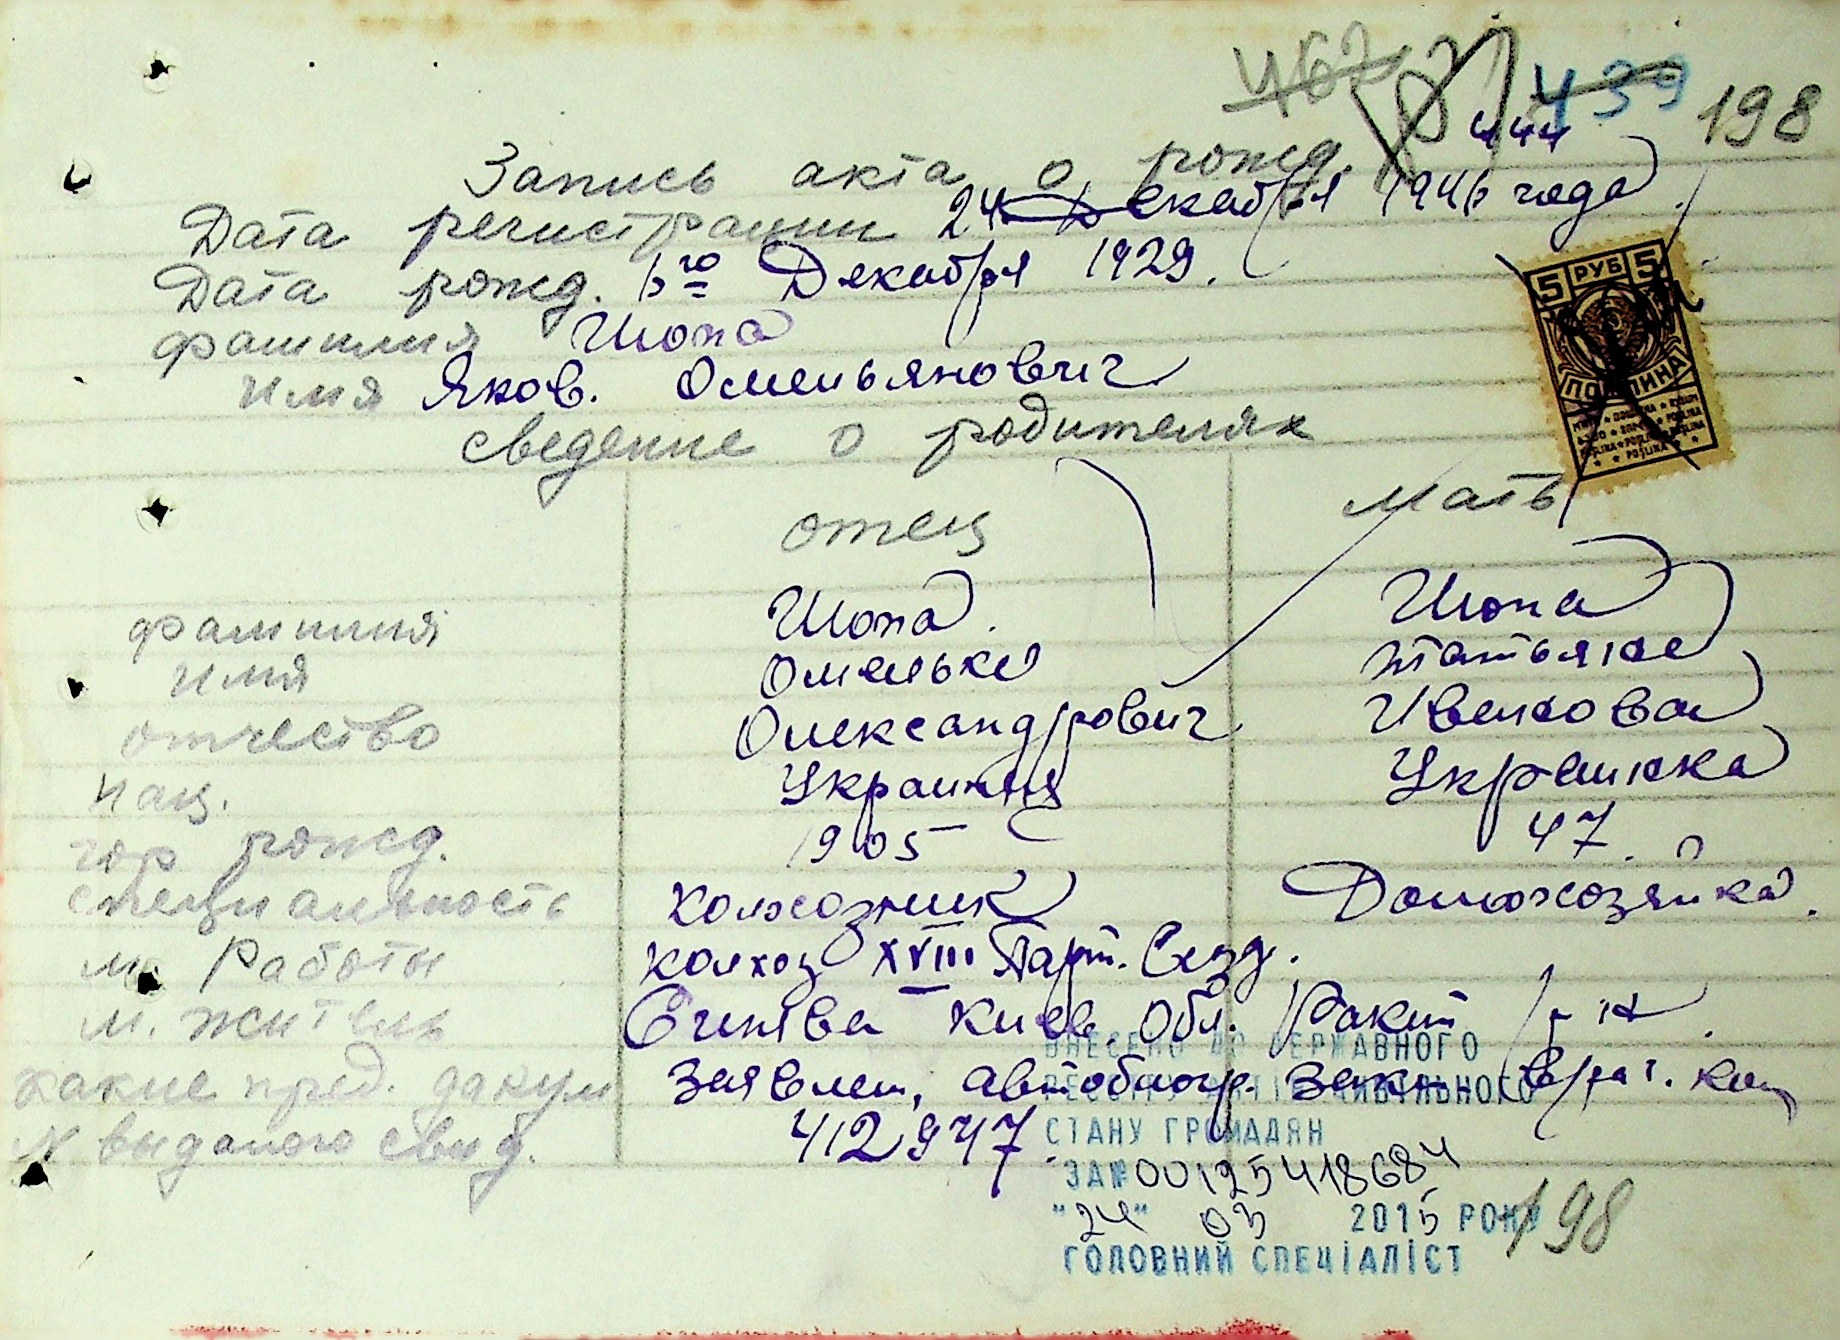 467 439 198
444
Запись акта о рожд.
Дата регистрации 24 Декабря 1946 года
Дата рожд. 6го Декабря 1929.
фамилия Шопа
имя Яков. Омельянович
сведение о родителях
5 РУБ 5
ПОШЛИНА
отец мать
фамилия Шопа. Шопа
имя Омелько татьяна
отчество Олександрович Ивановна
нац. Украинец Украинка
год рожд. 1905 47.
специальность колхозник Домохозяйка.
м. Работы колхоз XVIII Парт. Сезд.
м. житель Киев. Обл. Ракит р-н.
какие пред. докум Заявлен, автобиогр. закл. врач. ком
N выданого свид. 412947.
ВНЕСЕНО ДО ДЕРЖАВНОГО
РЕЄСТРУ АКТІВ ЦИВІЛЬНОГО
СТАНУ ГРОМАДЯН
ЗА № 00125418684
"24" 03 2015 РОКУ 198
ГОЛОВНИЙ СПЕЦІАЛІСТ